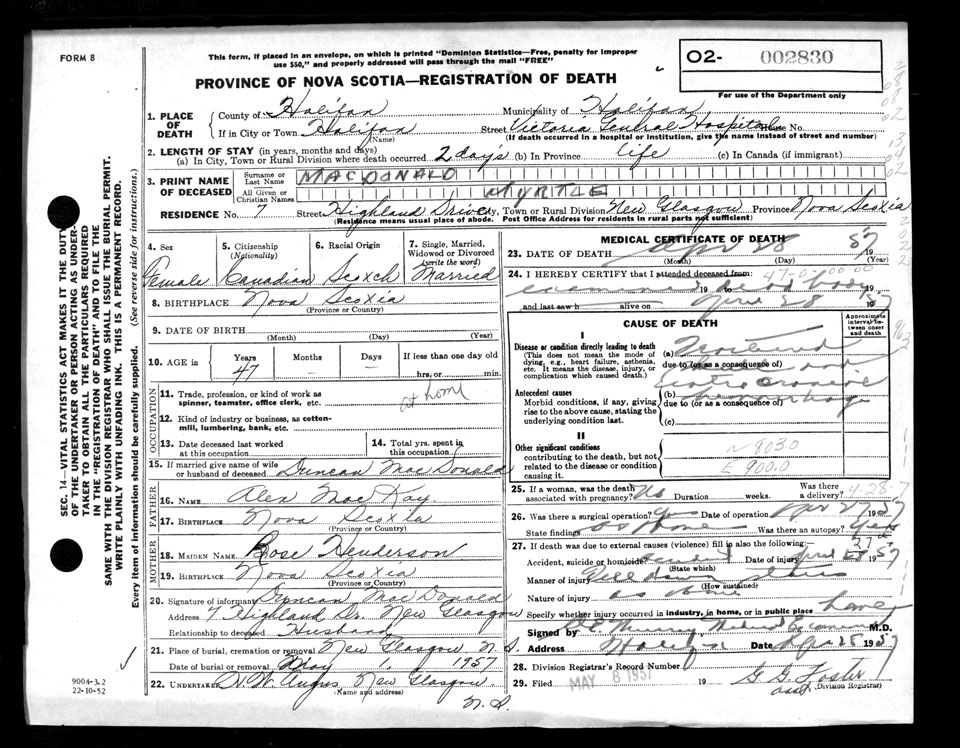 FORM 8
This form, if placed in an envelope, on which is printed "Dominion Statistics—Free, penalty for improper
use $50," and properly addressed will pass through the mail "FREE"
PROVINCE OF NOVA SCOTIA—REGISTRATION OF DEATH
02- 002830
For use of the Department only
1. PLACE OF DEATH
County of Halifax Municipality of Halifax
If in City or Town Halifax Street Victoria General Hospital House No.
(Name) (If death occurred in a hospital or institution, give the name instead of street and number)
2. LENGTH OF STAY (in years, months and days)
(a) In City, Town or Rural Division where death occurred 2 days (b) In Province life (c) In Canada (if immigrant)
3. PRINT NAME OF DECEASED
Surname or Last Name MACDONALD
All Given or Christian Names MYRTLE
RESIDENCE No. 7 Street Highland Drive City, Town or Rural Division New Glasgow Province Nova Scotia
(Residence means usual place of abode. Post Office Address for residents in rural parts not sufficient)
4. Sex
Female
5. Citizenship
(Nationality)
Canadian
6. Racial Origin
Scotch
7. Single, Married,
Widowed or Divorced
(write the word)
Married
8. BIRTHPLACE Nova Scotia
(Province or Country)
9. DATE OF BIRTH
(Month) (Day) (Year)
10. AGE in
Years Months Days If less than one day old
47 — — hrs. or min.
OCCUPATION
11. Trade, profession, or kind of work as
spinner, teamster, office clerk, etc. at home
12. Kind of industry or business, as cotton-
mill, lumbering, bank, etc.
13. Date deceased last worked
at this occupation
14. Total yrs. spent in
this occupation
15. If married give name of wife
or husband of deceased Duncan MacDonald
FATHER
16. NAME Alex MacKay
17. BIRTHPLACE Nova Scotia
(Province or Country)
MOTHER
18. MAIDEN NAME Rose Henderson
19. BIRTHPLACE Nova Scotia
(Province or Country)
20. Signature of informant Duncan MacDonald
Address 7 Highland Dr. New Glasgow
Relationship to deceased Husband
21. Place of burial, cremation or removal New Glasgow N.S.
Date of burial or removal May 1, 1957
22. UNDERTAKER Angus New Glasgow
(Name and address)
N.S.
MEDICAL CERTIFICATE OF DEATH
23. DATE OF DEATH Apr 28 1957
(Month) (Day) (Year)
24. I HEREBY CERTIFY that I attended deceased from:
47-0-00-00
examined 19 to dead body 19
and last saw h alive on April 28 1957
CAUSE OF DEATH
Approximate interval between onset and death
I
Disease or condition directly leading to death
(This does not mean the mode of
dying, e.g., heart failure, asthenia,
etc. It means the disease, injury, or
complication which caused death.)
(a)
due to (or as a consequence of)
Antecedent causes
Morbid conditions, if any, giving
rise to the above cause, stating the
underlying condition last.
(b) intracranial
due to (or as a consequence of)
hemorrhage
(c)
II
Other significant conditions
contributing to the death, but not
related to the disease or condition
causing it.
N 803.0
E 900.0
25. If a woman, was the death
associated with pregnancy? No Duration weeks. Was there
a delivery? 4-28-7
26. Was there a surgical operation? Yes Date of operation Apr 27 1957
State findings as above Was there an autopsy? Yes
27. If death was due to external causes (violence) fill in also the following:
Accident, suicide or homicide? accident Date of injury April 27 1957
(State which)
Manner of injury Fell down stairs
(How sustained)
Nature of injury as above
Specify whether injury occurred in industry, in home, or in public place home
Signed by Murray Medical Examiner M.D.
Address Halifax Date Apr 28 1957
28. Division Registrar's Record Number
29. Filed MAY 8 1957 19 Foster
(Division Registrar)
SEC. 14—VITAL STATISTICS ACT MAKES IT THE DUTY
OF THE UNDERTAKER OR PERSON ACTING AS UNDER-
TAKER TO OBTAIN ALL THE PARTICULARS REQUIRED
IN THE "REGISTRATION OF DEATH" AND TO FILE THE
SAME WITH THE DIVISION REGISTRAR WHO SHALL ISSUE THE BURIAL PERMIT.
WRITE PLAINLY WITH UNFADING INK. THIS IS A PERMANENT RECORD.
Every item of information should be carefully supplied. (See reverse side for instructions.)
9004-3.2
22-10-52